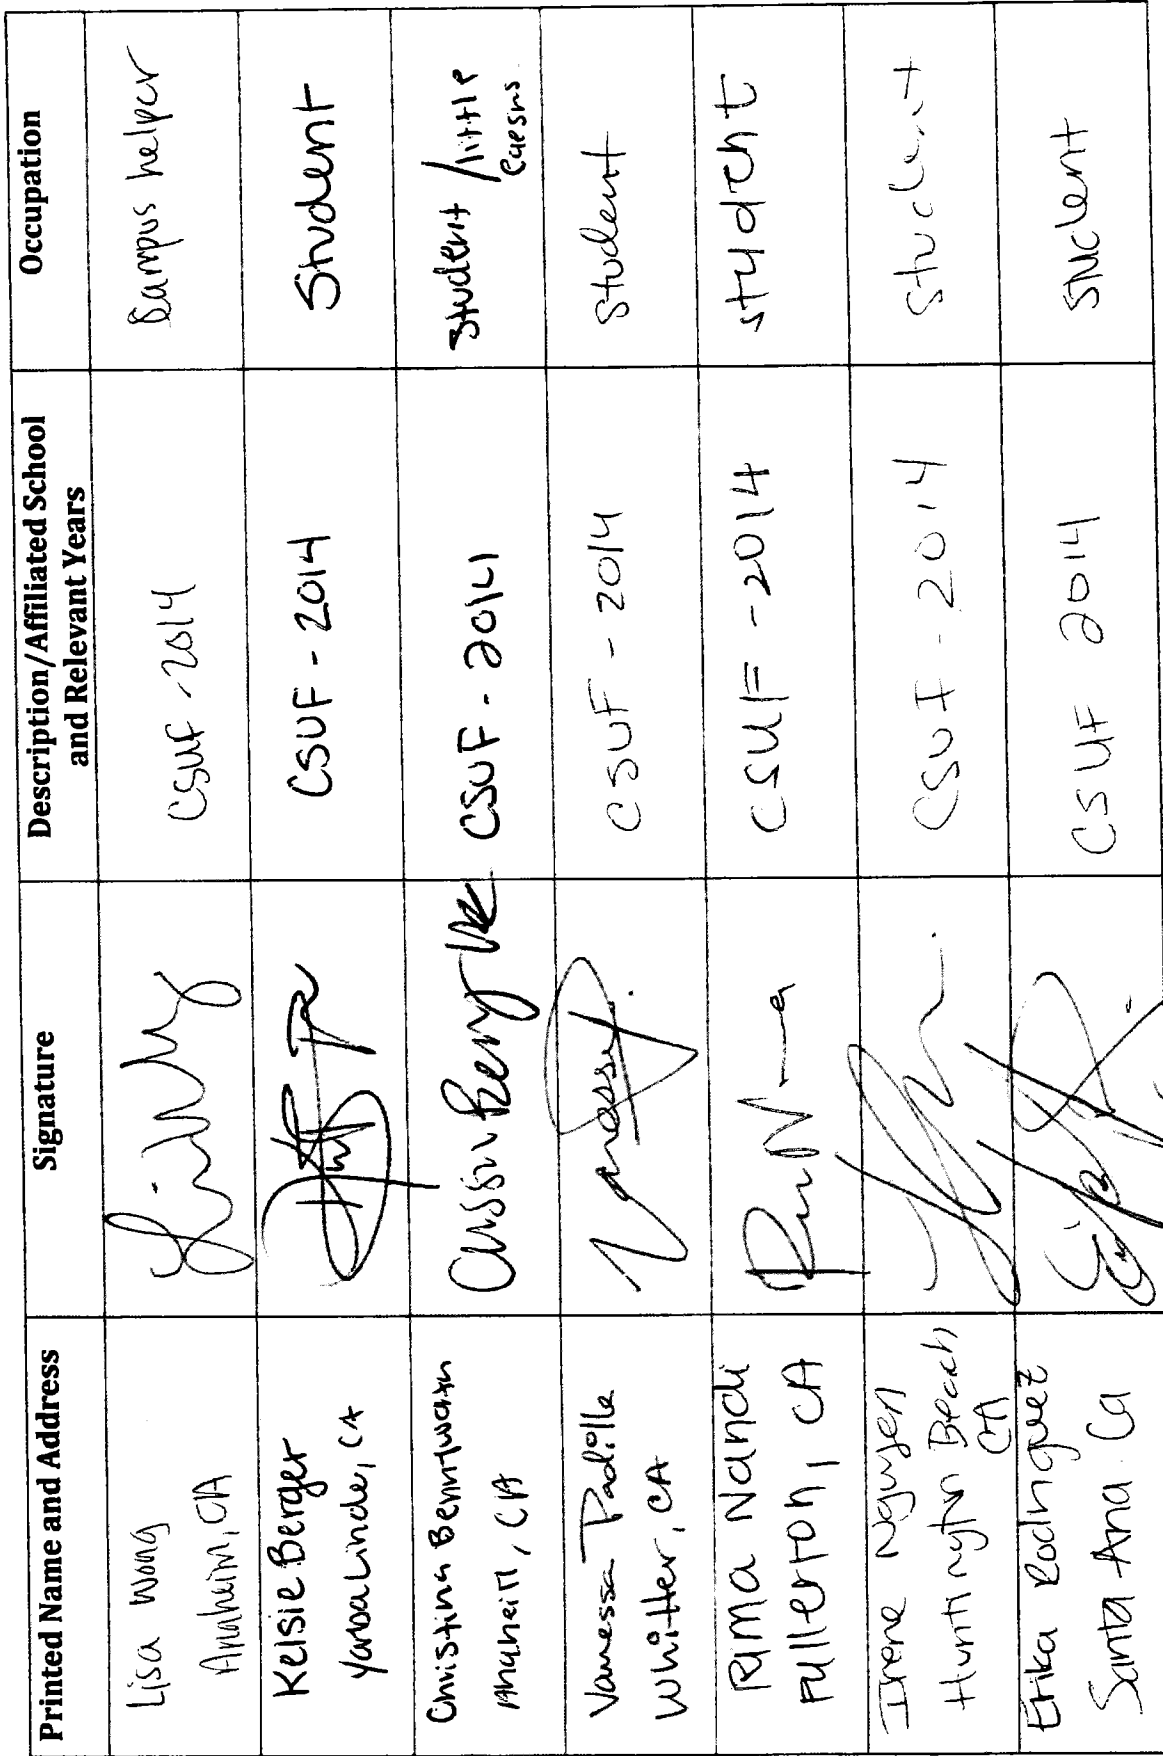 Printed Name and Address
Signature
Description/Affiliated School
and Relevant Years
Occupation
Lisa Wong
Anaheim, CA
CSUF - 2014
Campus helper
Kelsie Berger
Yorba Linda, CA
CSUF - 2014
Student
Christina
Anaheim, CA
CSUF - 2014
Student / little
Vanessa Padilla
Whittier, CA
Vanessa
CSUF - 2014
Student
Rima Nandi
Fullerton, CA
CSUF - 2014
student
Irene Nguyen
Huntington Beach
CA
CSUF - 2014
Student
Erika Rodriguez
Santa Ana Ca
CSUF 2014
Student